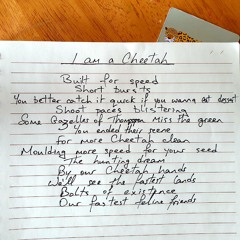 I am a Cheetah
Built for speed
Short bursts
You better catch it quick if you wanna eat
Shoot paces blistering
Some Gazelles of Thompson Miss the green
You ended their
For more Cheetah clean
Moulding more speed for your seed
The hunting dream
By our Cheetah hands
We'll see the faster lands
Bolts of existence
Our fastest feline friends